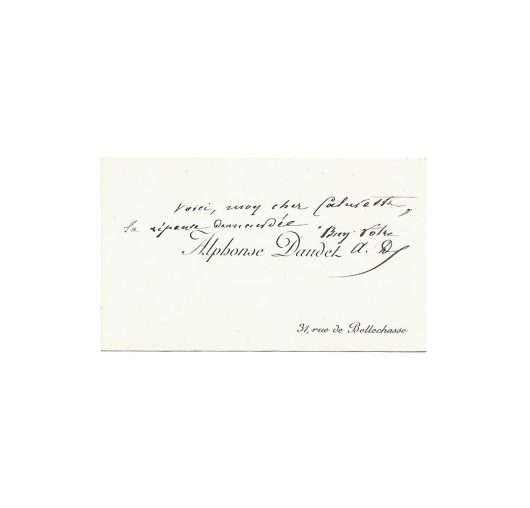 Voici, mon cher Calmette,
la réponse demandée Bien vôtre
Alphonse Daudet A. D
31, rue de Bellechasse